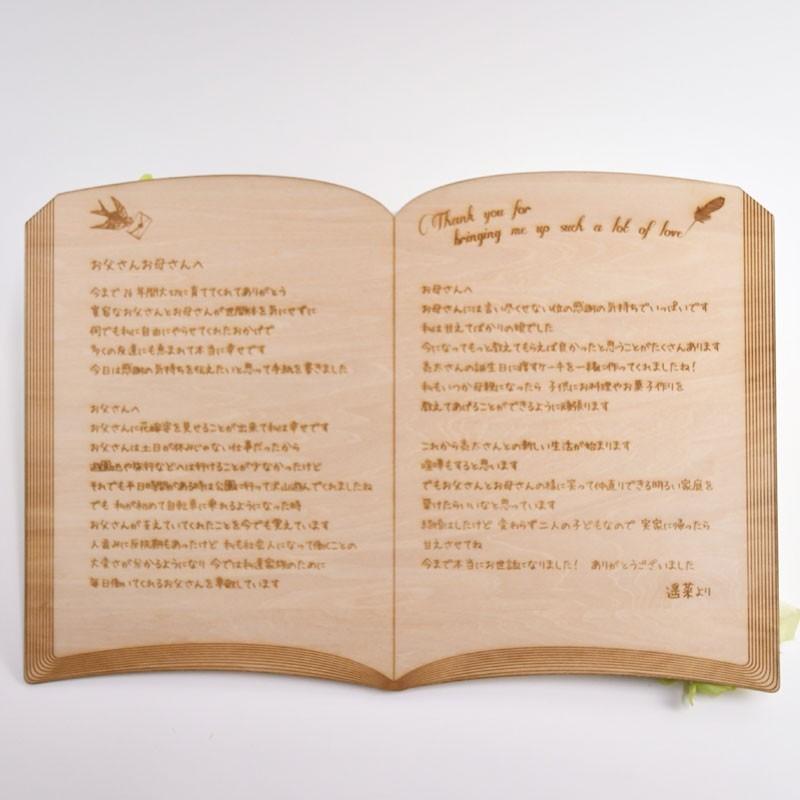 お父さんお母さんへ
今まで26年間大切に育ててくれてありがとう
お父さんとお母さんが世間体を気にせずに
何でも私に自由にやらせてくれたおかげで
多くの友達にも恵まれて本当に幸せです
今日は感謝の気持ちを伝えたいと思って手紙を書きました
お父さんへ
お父さんに花嫁姿を見せることが出来て私は幸せです
お父さんは土日が休みじゃない仕事だったから
遊園地や旅行などへは行けることが少なかったけど
それでも平日時間がある時は公園に行って沢山遊んでくれましたね
でも 私が初めて自転車に乗れるようになった時
お父さんが支えていてくれたことを今でも覚えています
人並みに反抗期もあったけど 私も社会人になって働くことの
大変さが分かるようになり 今では私達家族のために
毎日働いてくれるお父さんを尊敬しています
Thank you for
bringing me up such a lot of love
お母さんへ
お母さんには言い尽くせない位の感謝の気持ちでいっぱいです
私は甘えてばかりの娘でした
今になってもっと教えてもらえば良かったと思うことがたくさんあります
亮太さんの誕生日に渡すケーキを一緒に作ってくれましたね!
私もいつか母親になったら 子供にお料理やお菓子作りを
教えてあげることができるように頑張ります
これから亮太さんとの新しい生活が始まります
喧嘩もすると思います
でもお父さんとお母さんの様に笑って仲直りできる明るい家庭を
築けたらいいなと思っています
結婚はしたけど 変わらず二人の子どもなので 実家に帰ったら
甘えさせてね
今まで本当にお世話になりました! ありがとうございました
遥菜より